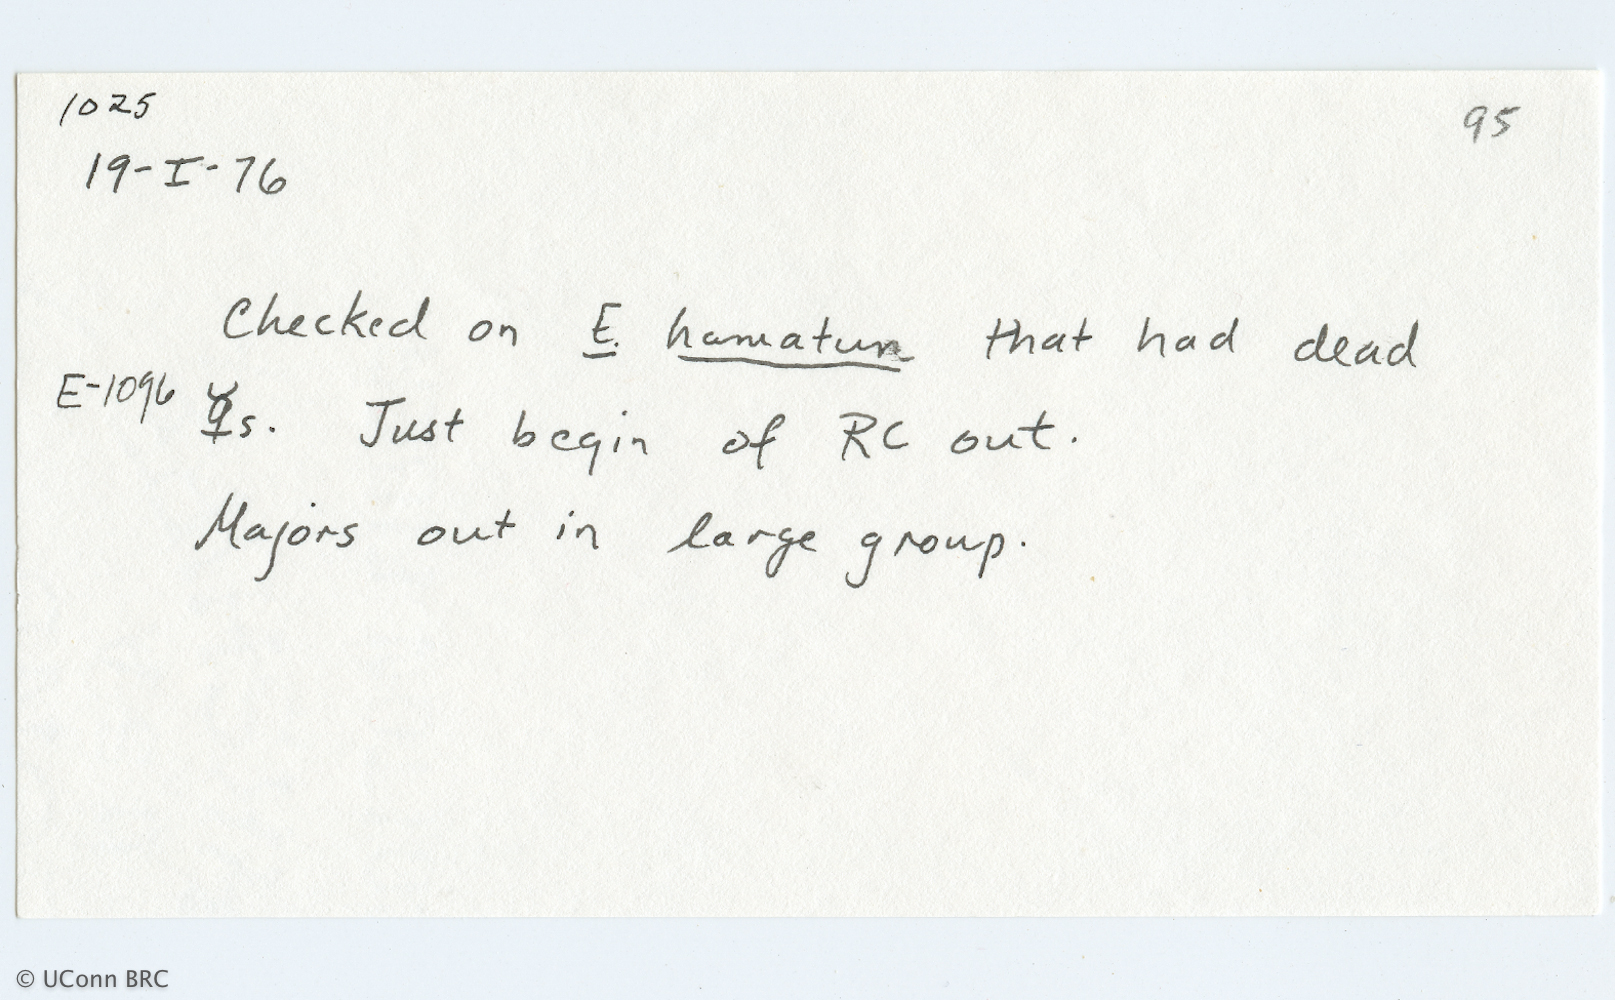 1025
95
19-I-76
Checked on E. hamatum that had dead
E-1096 ☿s. Just begin of RC out.
Majors out in large group.
© UConn BRC